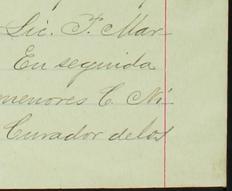 Lic. F. Mar
En seguida
menores C. Ni
Curador de los